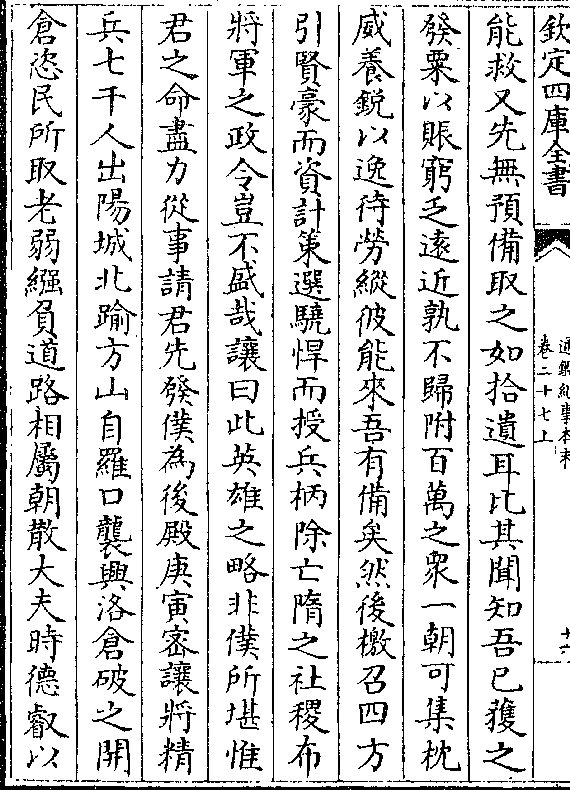 欽定四庫全書
通鑑紀事本末
卷二十七上
十六
能救又先無預備取之如拾遺耳比其聞知吾已獲之
發粟以賑窮乏遠近孰不歸附百萬之衆一朝可集枕
威養鋭以逸待勞縱彼能來吾有備矣然後檄召四方
引賢豪而資計策選驍悍而授兵柄除亡隋之社稷布
將軍之政令豈不盛哉讓曰此英雄之略非僕所堪惟
君之命盡力從事請君先發僕為後殿庚寅密讓將精
兵七千人出陽城北踰方山自羅口襲興洛倉破之開
倉恣民所取老弱繦負道路相屬朝散大夫時德叡以